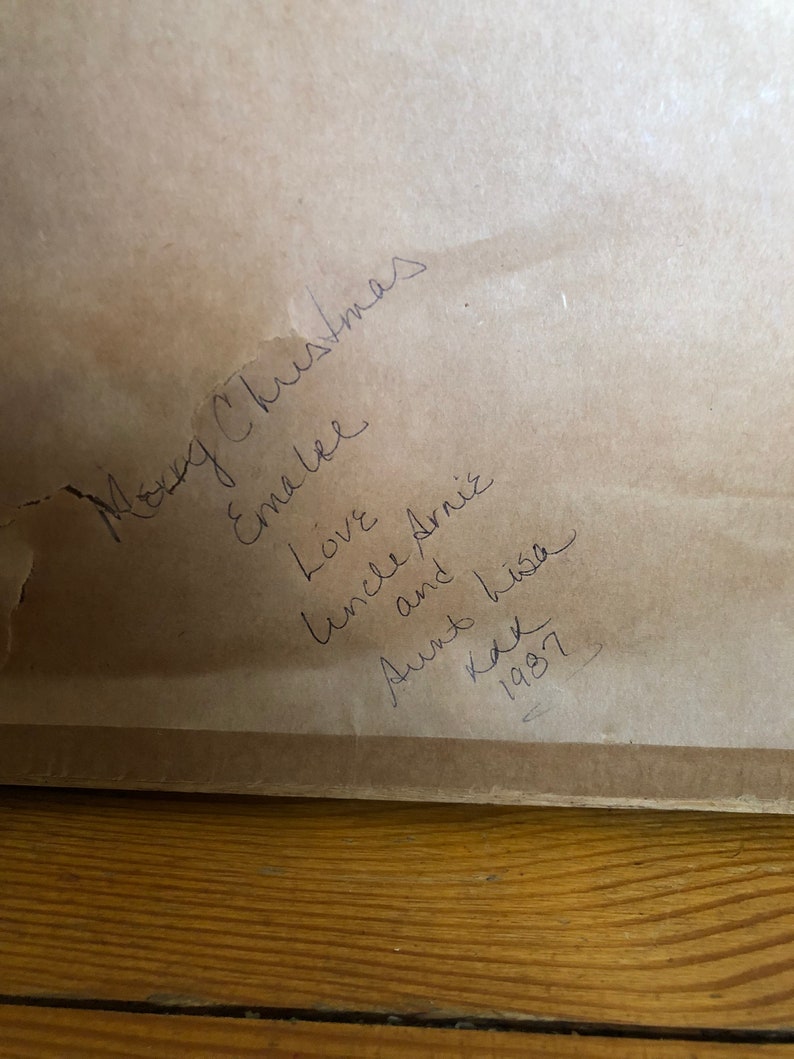 Merry Christmas
Emalee
Love
Uncle Arnie
and
Aunt Lisa
xxx
1987